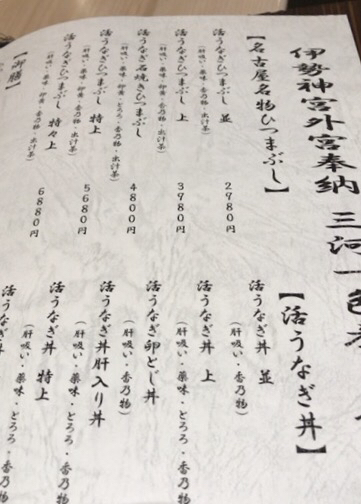 伊勢神宮外宮奉納 三河一色
【名古屋名物ひつまぶし】
活うなぎひつまぶし 並 2980円
(肝吸い・薬味・香乃物・出汁茶)
活うなぎひつまぶし 上 3980円
(肝吸い・薬味・香乃物・出汁茶)
活うなぎ石焼きひつまぶし 4800円
活うなぎひつまぶし 特上 5680円
活うなぎひつまぶし 特々上 6880円
【御膳】
【活うなぎ丼】
活うなぎ丼 並
(肝吸い・香乃物)
活うなぎ丼 上
(肝吸い・薬味・とろろ・香乃物)
活うなぎ卵とじ丼
(肝吸い・香乃物)
活うなぎ丼肝入り丼
(肝吸い・薬味・とろろ・香乃物)
活うなぎ丼 特上
(肝吸い・薬味・とろろ・香乃物)
活うなぎ